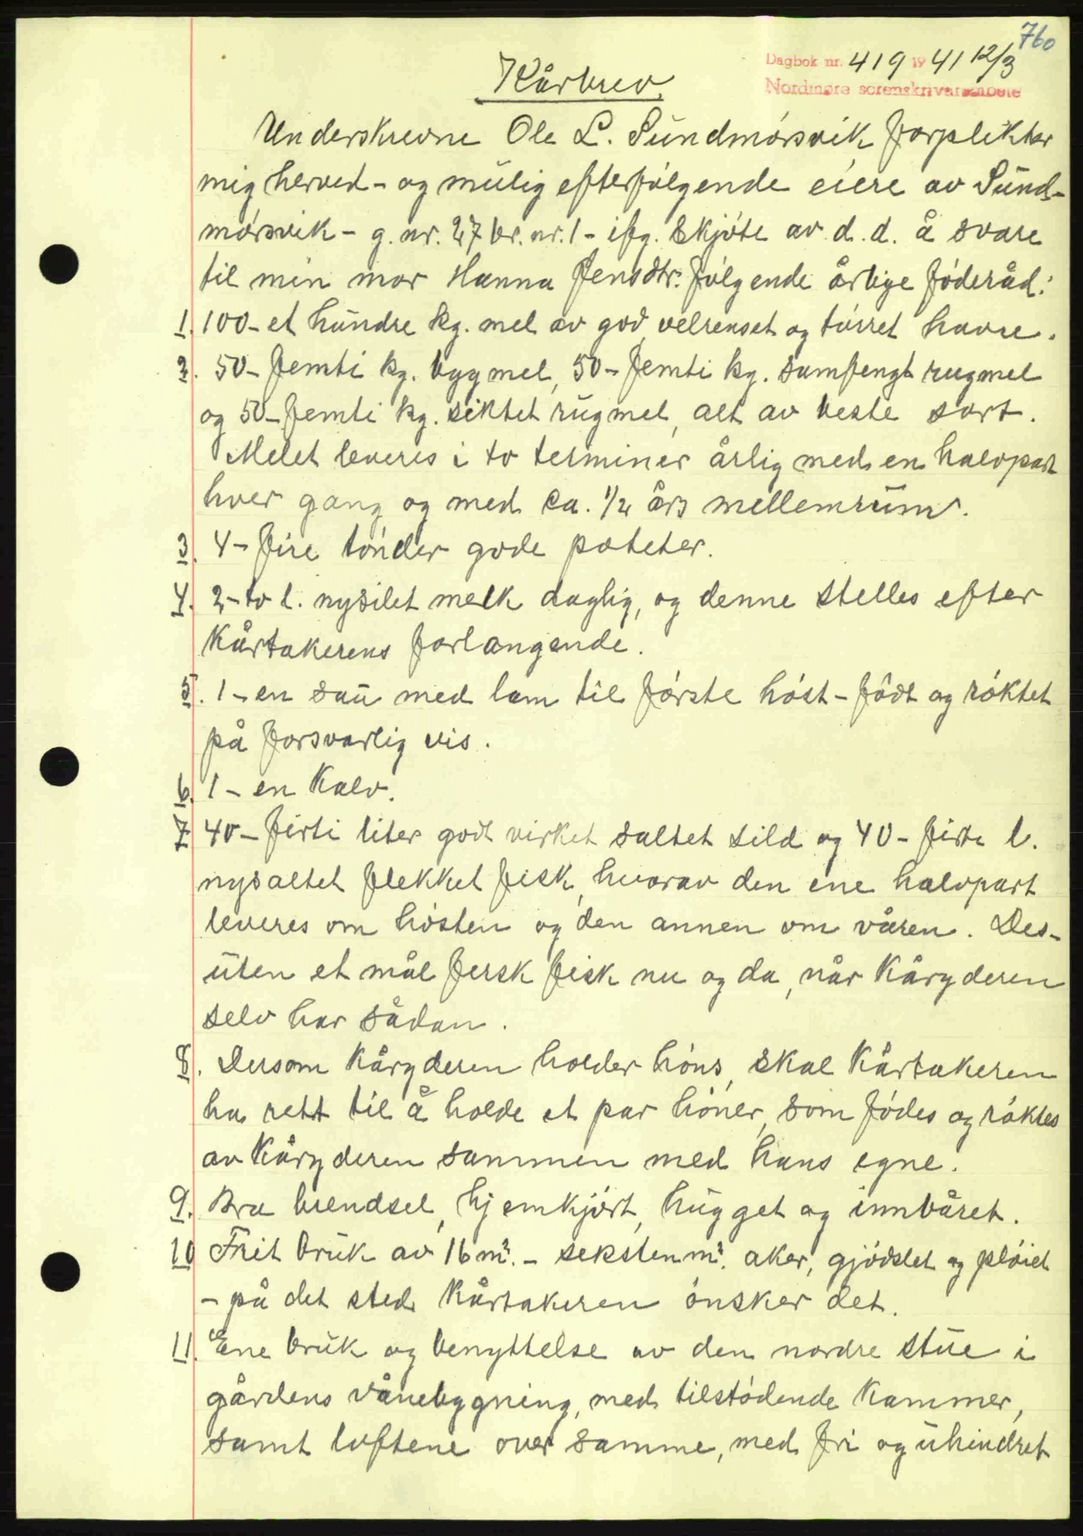 760
Dagbok nr. 419 1941 12/3
Nordmøre sorenskriverembete
Kårbrev.
Underskrevne Ole L. Sundmørsvik forplikter
mig herved - og mulig efterfølgende eiere av Sund-
mørsvik - g. nr. 27 br. nr. 1 - ifg. skjøte av d.d. å svare
til min mor Hanna Jensdtr. følgende årlige føderåd:
1. 100 - et hundre kg. mel av god, velrenset og tørret havre.
2. 50 - femti kg. bygmel, 50 - femti kg. samfengt rugmel
og 50 - femti kg. siktet rugmel, alt av beste sort.
Melet leveres i to terminer årlig med en halvpart
hver gang og med ca. 1/2 års mellemrum.
3. 4 - fire tønder gode poteter.
4. 2 - to l. nysilet melk daglig, og denne stelles efter
Kårtakerens forlangende.
5. 1 - en sau med lam til første høst - född og røktet
på forsvarlig vis.
6. 1 - en Kalv.
7 40 - førti liter godt virket saltet sild og 40 - førti l.
nysaltet flekket fisk, hvorav den ene halvpart
leveres om høsten og den annen om våren. Des-
uten et mål fersk fisk nu og da, når Kåryderen
selv har sådan.
8. Dersom Kåryderen holder høns, skal Kårtakeren
ha rett til å holde et par høner, som fødes og røktes
av Kåryderen sammen med hans egne.
9. Bra brendsel, hjemkjørt, hugget og innbåret.
10 Frit bruk av 16 m². - seksten m². aker, gjødslet og pløiet
- på det sted Kårtakeren ønsker det.
11. Ene bruk og benyttelse av den nordre stue i
gårdens vånebygning, med tilstødende Kammer,
samt loftene over samme, med fri og uhindret